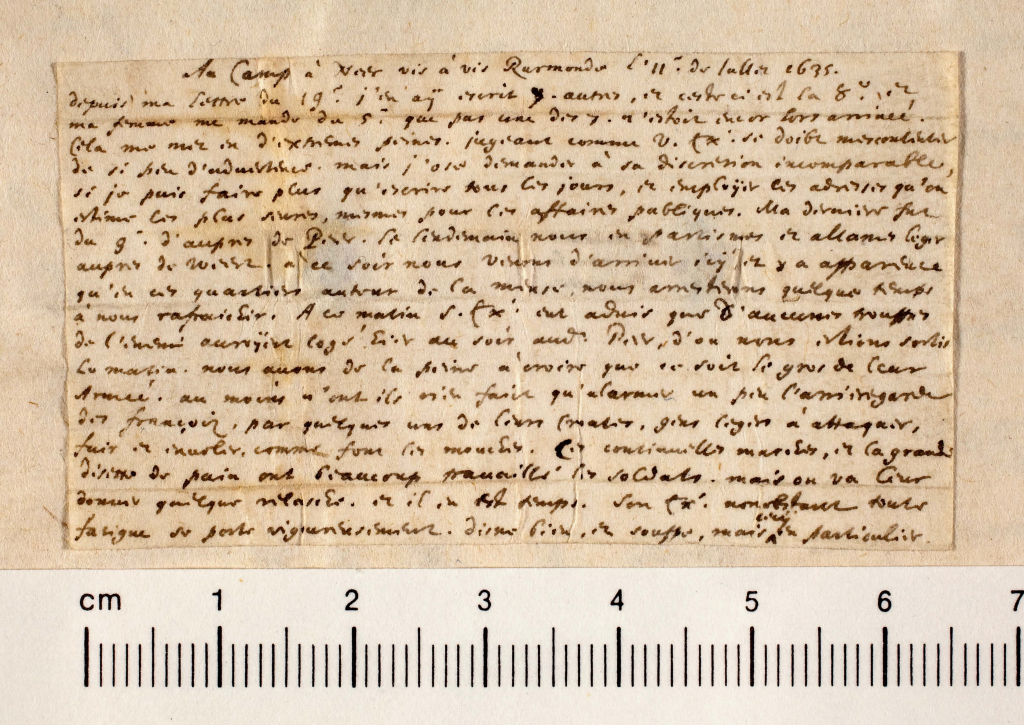 Au Camp à Neer vis à vis Rurmonde l'11e. de Jullet 1635.
depuis ma lettre du 19e. j'en aÿ escrit 7. autres, et ceste ci est la 8e. et
ma femme me mande du 5e. que pas une des 7. n'estoit encor lors arrivée.
Cela me met en d'extremes peines. jugeant comme V. Exe. se doibt mescontenter
de si peu d'advertence. mais j'ose demander à sa discretion incomparable,
si je puis faire plus qu'escrire tous les jours, et emploÿer les adresses qu'on
estime les plus seures, mesmes pour les affaires publiques. Ma derniere fut
du 9e. d'aupres de Peer. Le lendemain nous en partismes et allames loger
aupres de Weert. à ce soir nous venons d'arriver icÿ et y a apparence
qu'en ces quartiers autour de la meuse, nous arresterons quelque temps
à nous rafraichir. A ce matin S. Exe. eut advis que d'aucunes trouppes
de l'ennemi auroÿent logé hier au soir aud. Peer, d'ou nous estions sortis
le matin. nous avons de la peine à croire que ce soit le gros de leur
Armée. au moins n'ont ils rien faict qu'alarmer un peu l'arrieregarde
des françois, par quelques uns de leurs Croates, gens legers à attaquer,
fuir et envoler, comme font les mouches. Ces continuelles marches, et la grande
disette de pain ont beaucoup travaillé les soldats. mais on va leur
donner quelque relasche. et il en est temps. Son Exe. nonobstant toute
fatigue se porte vigoureusement. disne bien, et souppe, mais en particulier.